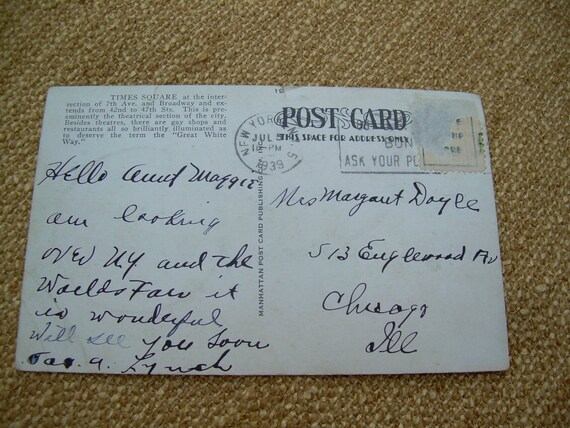 TIMES SQUARE at the inter-
section of 7th Ave. and Broadway and ex-
tends from 42nd to 47th Sts. This is pre-
eminently the theatrical section of the city.
Besides theatres, there are gay shops and
restaurants all so brilliantly illuminated as
to deserve the term the "Great White
Way."
Hello Aunt Maggie
am looking
over NY and the
Worlds Fair it
is wonderful
Will see you soon
Jas. A. Lynch
MANHATTAN POST CARD PUBLISHING
POST CARD
THIS SPACE FOR ADDRESS ONLY
NEW YORK, N.Y.
JUL 5
PM
1939
ASK YOUR
Mrs Margaret Doyle
513 Englewood Av
Chicago
Ill